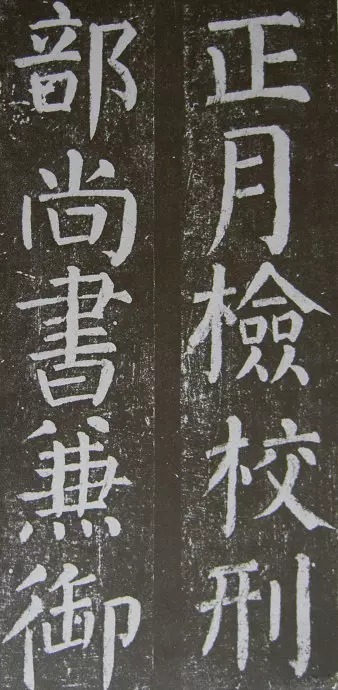 正月檢校刑
部尚書兼御